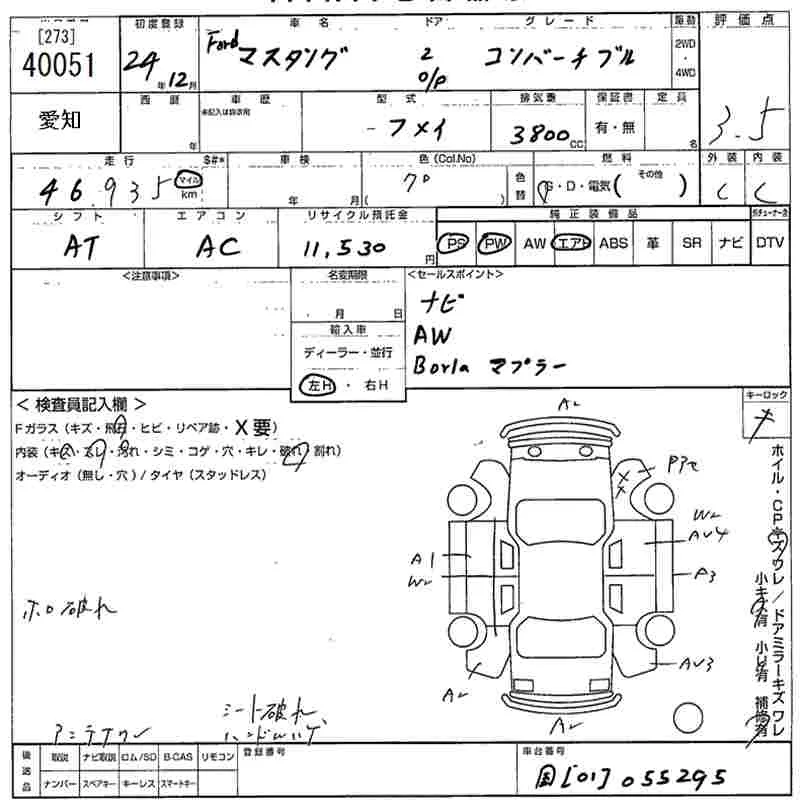 [273]
40051
愛知
初度登録
24年12月
車名
Ford マスタング
ドア
2
o/p
グレード
コンバーチブル
駆動
2WD
・
4WD
評価点
3.5
西暦
年
車歴
未記入は自家用
型式
-フメイ
排気量
3800cc
保証書
有・無
定員
名
走行
46,935
マイル
km
S#*
車検
年 月
色(Col.No)
クロ
( )
色替
燃料
G・D・電気( その他 )
外装
C
内装
C
シフト
AT
エアコン
AC
リサイクル預託金
11,530円
純正装備品
PS PW AW エアB ABS 革 SR ナビ DTV
<注意事項>
名変期限
月 日
輸入車
ディーラー・並行
左H・右H
<セールスポイント>
ナビ
AW
Borla マフラー
<検査員記入欄>
Fガラス(キズ・飛石・ヒビ・リペア跡・X要)
内装(キズ・スレ・汚れ・シミ・コゲ・穴・キレ・破れ・割れ)
オーディオ(無し・穴)/タイヤ(スタッドレス)
キーロック
ホイル・CPキズワレ/ドアミラーキズワレ
小キズ有 小凹有 補修有
A2
P3
W2
AU4
A1
W2
P3
AU3
A2
A2
ホロ破れ
アンテナワレ
シート破れ
ハンドルハゲ
後送品
取説 ナビ取説 ロム/SD B-CAS リモコン
ナンバー スペアキー キーレス スマートキー
登録番号
車台番号
国[01]055295